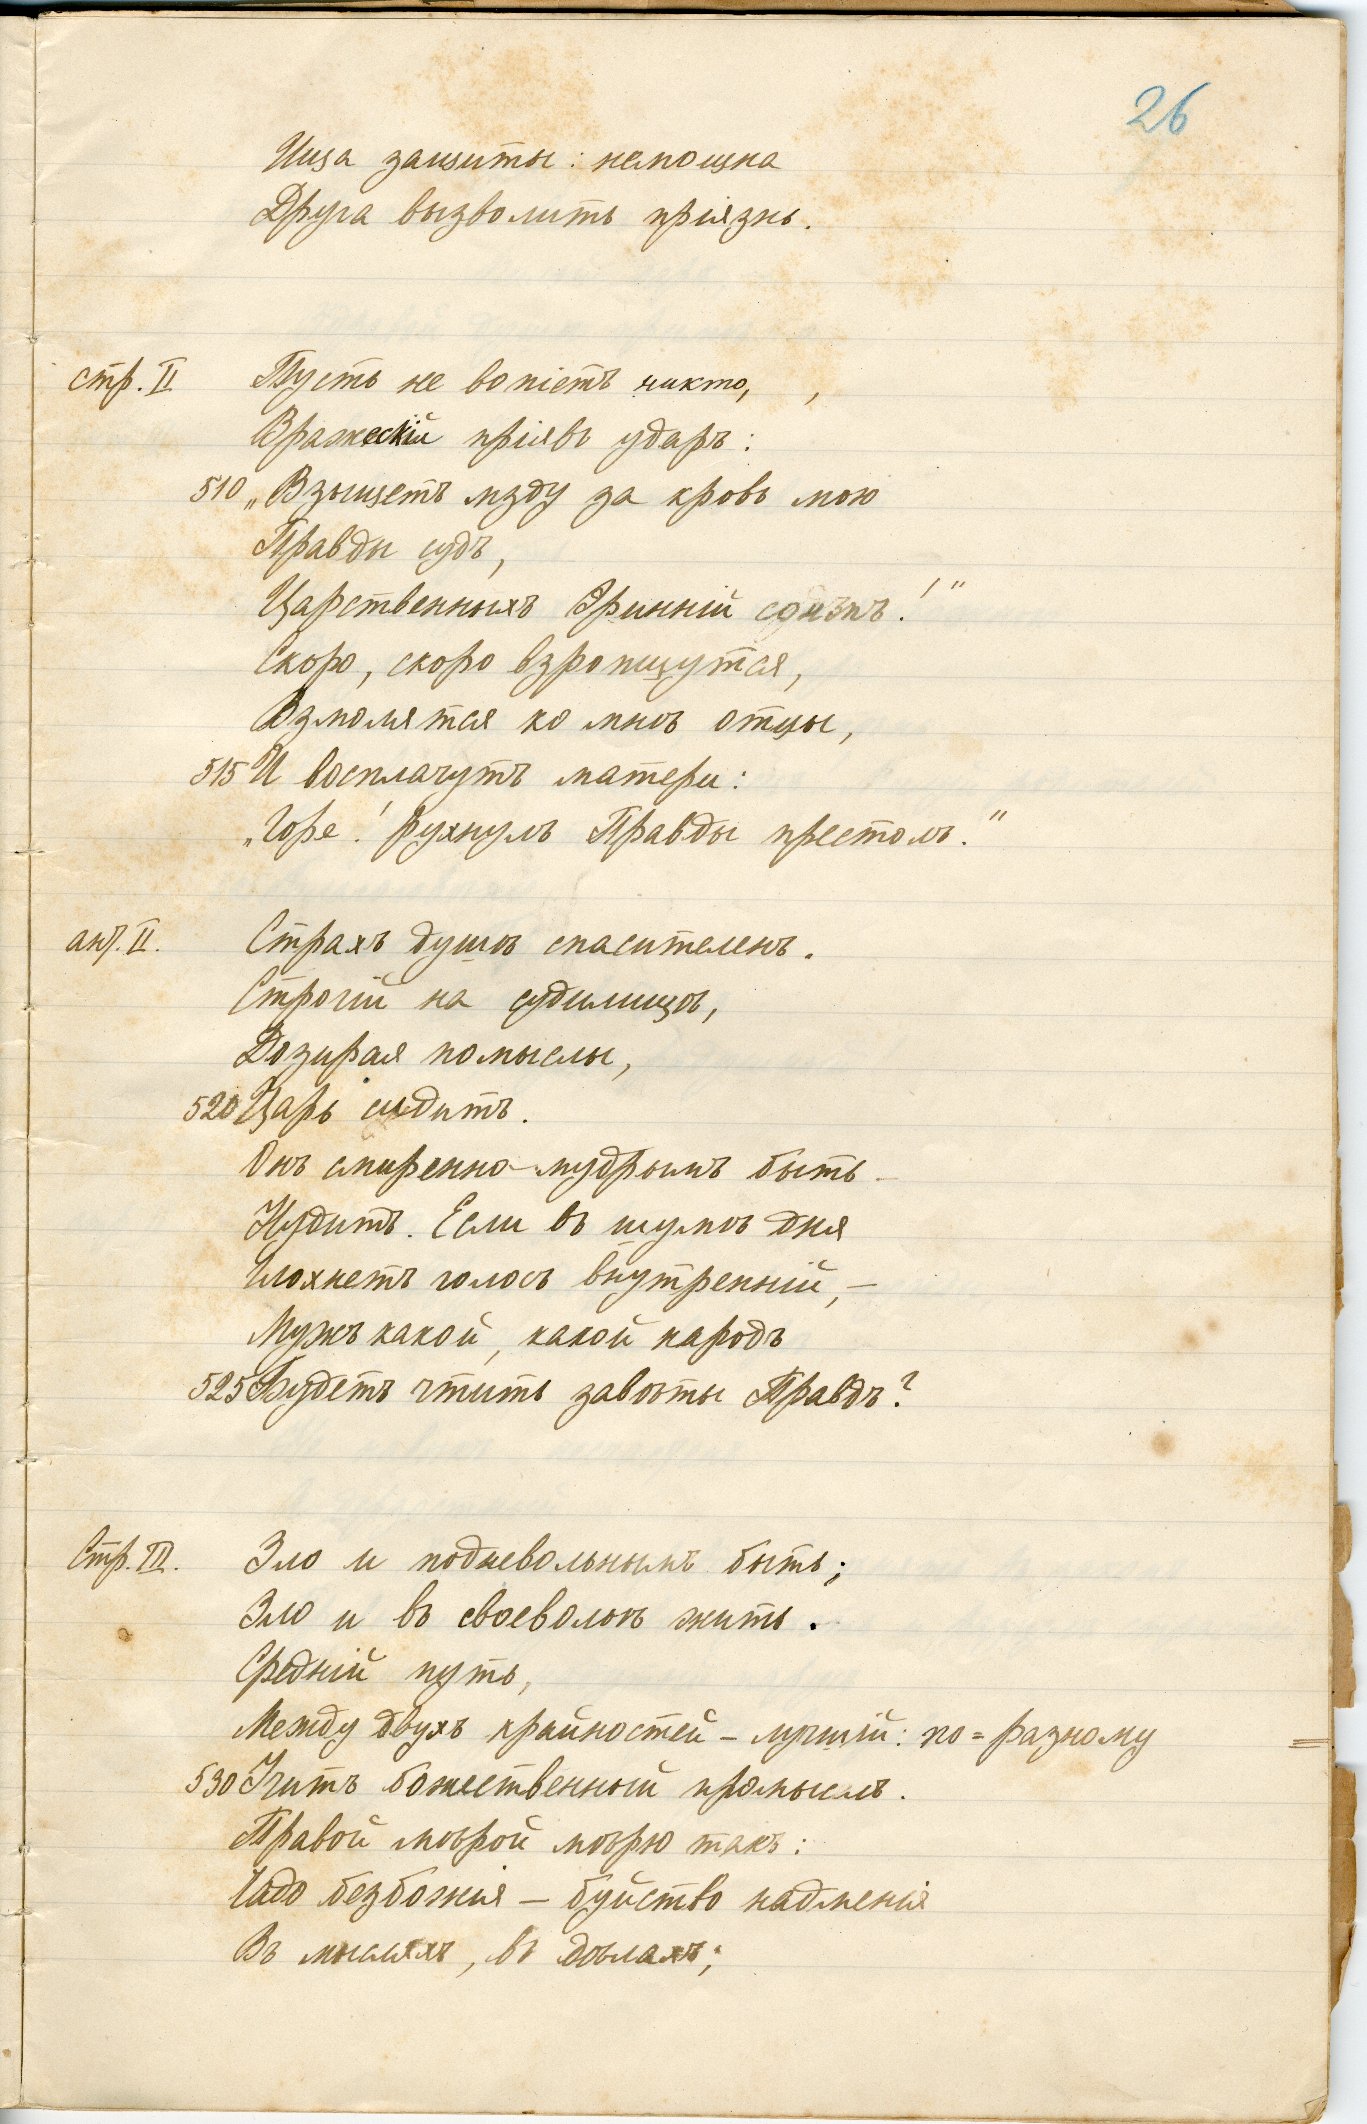 26
Ища защиты: немощна
Друга вызволить пріязнь.
стр. II Пусть не вопіетъ никто,
Вражескій пріявъ ударъ:
510 „Взыщетъ мзду за кровь мою
Правды судъ,
Царственныхъ Эринній сонмъ!"
Скоро, скоро взропщутся,
Взмолятся ко мнѣ отцы,
515 И восплачутъ матери:
„Горе! Рухнулъ Правды престолъ."
ант. II. Страхъ душѣ спасителенъ.
Строгій на судилищѣ,
Дозирая помыслы,
520 Царь сидитъ.
Онъ смиренно-мудрымъ быть
Нудитъ. Если въ шумѣ дня
Глохнетъ голосъ внутренній, –
Мужъ какой, какой народъ
525 Будетъ чтить завѣты Правдъ?
Стр. III. Зло и подневольнымъ быть;
Зло и въ своевольѣ жить.
Средній путь,
Между двухъ крайностей – лучшій: по=разному
530 Учитъ божественный промыслъ.
Правой мѣрой мѣрю такъ:
Чадо безбожія – буйство надменія
Въ мысляхъ, въ дѣлахъ;